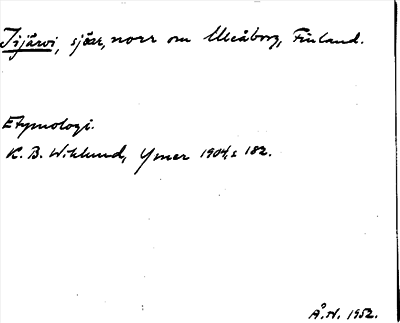 Jijärvi, sjöar, norr om Uleåborg, Finland.
Etymologi.
K. B. Wiklund, Ymer 1904, s 182.
Å. N. 1952.